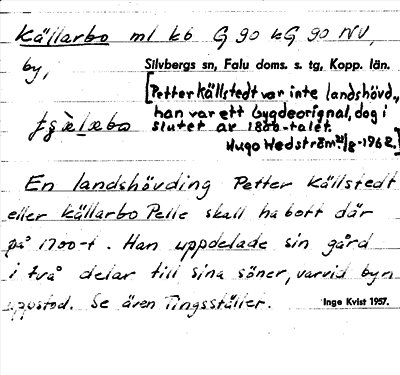 Källarbo ml kb G 90 kG 90 NV,
by,
Silvbergs sn, Falu doms. s. tg, Kopp. län.
[Petter Källstedt var inte landshövd.,
han var ett bygdeorignal, dog i
slutet av 1800-talet.
Hugo Hedström 21/8-1962.]
En landshövding Petter Källstedt
eller Källarbo Pelle skall ha bott där
på 1700-t. Han uppdelade sin gård
i två delar till sina söner, varvid byn
uppstod. Se även Tingsställer.
Inge Kvist 1957.